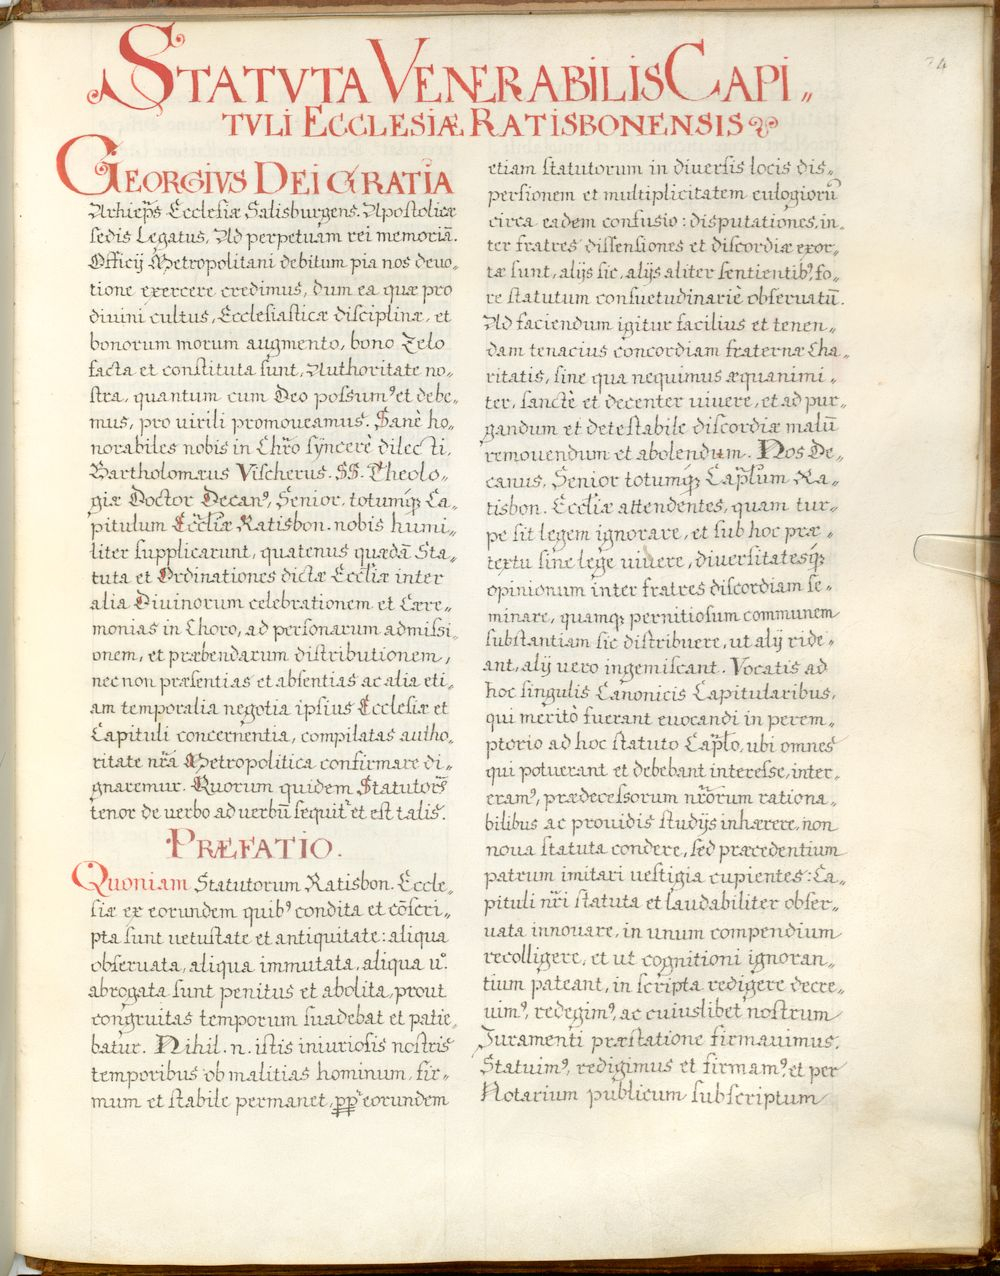 STATVTA VENERABILIS CAPI„
TVLI ECCLESIÆ RATISBONENSIS
24
GEORGIVS DEI GRATIA
Arhiep̃s Ecclesiæ Salisburgens. Apostolicæ
sedis Legatus, Ad perpetuam rei memoriā.
Officij Metropolitani debitum pia nos deuo„
tione exercere credimus, dum ea quæ pro
diuini cultus, Ecclesiasticæ disciplinæ, et
bonorum morum augmento, bono Zelo
facta et constituta sunt, Authoritate no„
stra, quantum cum Deo possumꝰ et debe„
mus, pro uirili promoueamus. Sanè ho„
norabiles nobis in Chr̃o sÿncerè dilecti,
Bartholomæus Vischerus. SS. Theolo„
giæ Doctor Decanꝰ, Senior, totumq́ꝫ Ca„
pitulum Eccl̃iæ Ratisbon. nobis humi„
liter supplicarunt, quatenus quædā Sta„
tuta et Ordinationes dictæ Eccl̃iæ inter
alia Diuinorum celebrationem et Cære„
monias in Choro, ad personarum admissi„
onem, et præbendarum distributionem,
nec non præsentias et absentias ac alia eti„
am temporalia negotia ipsius Ecclesiæ et
Capituli concernentia, compilatas autho„
ritate nr̃a Metropolitica confirmare di„
gnaremur. Quorum quidem Statutor̃
tenor de verbo ad verbū sequit᷑ et est talis.
PRÆFATIO.
Quoniam Statutorum Ratisbon. Eccle„
siæ ex eorundem quibꝰ condita et cōscri„
pta sunt uetustate et antiquitate: aliqua
obseruata, aliqua immutata, aliqua u°.
abrogata sunt penitus et abolita, prout
congruitas temporum suadebat et patie„
batur. Nihil. n. istis iniuriosis nostris
temporibus ob malitias hominum, fir„
mum et stabile permanet, ꝓpt᷑ eorundem
etiam statutorum in diuersis locis dis„
persionem et multiplicitatem eulogiorū
circa eadem confusio: disputationes, in„
ter fratres dissensiones et discordiæ exor„
tæ sunt, alijs sic, alijs aliter sentientibꝰ, fo„
re statutum consuetudinariè obseruatū.
Ad faciendum igitur facilius et tenen„
dam tenacius concordiam fraternæ Cha„
ritatis, sine qua nequimus æquanimi„
ter, sanctè et decenter uiuere, et ad pur„
gandum et detestabile discordiæ malū
remouendum et abolendum. Nos De„
canus, Senior totumq́ꝫ Capl̃um Ra„
tisbon. Eccl̃iæ attendentes, quam tur„
pe sit legem ignorare, et sub hoc præ„
textu sine lege uiuere, diuersitatesq́ꝫ
opinionum inter fratres discordiam se„
minare, quamqꝫ pernitiosum communem
substantiam sic distribuere, ut alij ride„
ant, alij uero ingemiscant. Vocatis ad
hoc singulis Canonicis Capitularibus,
qui meritò fuerant euocandi in perem„
ptorio ad hoc statuto Capl̃o, ubi omnes
qui potuerant et debebant interesse, inter„
eramꝰ, prædecessorum nr̃orum rationa„
bilibus ac prouidis studijs inhærere, non
noua statuta condere, sed præcedentium
patrum imitari uestigia cupientes: Ca„
pituli nr̃i statuta et laudabiliter obser„
uata innouare, in unum compendium
recolligere, et ut cognitioni ignoran„
tium pateant, in scripta redigere decre„
uimꝰ, redegimꝰ, ac cuiuslibet nostrum
Juramenti præstatione firmauimus.
Statuimꝰ, redigimus et firmamꝰ, et per
Notarium publicum subscriptum